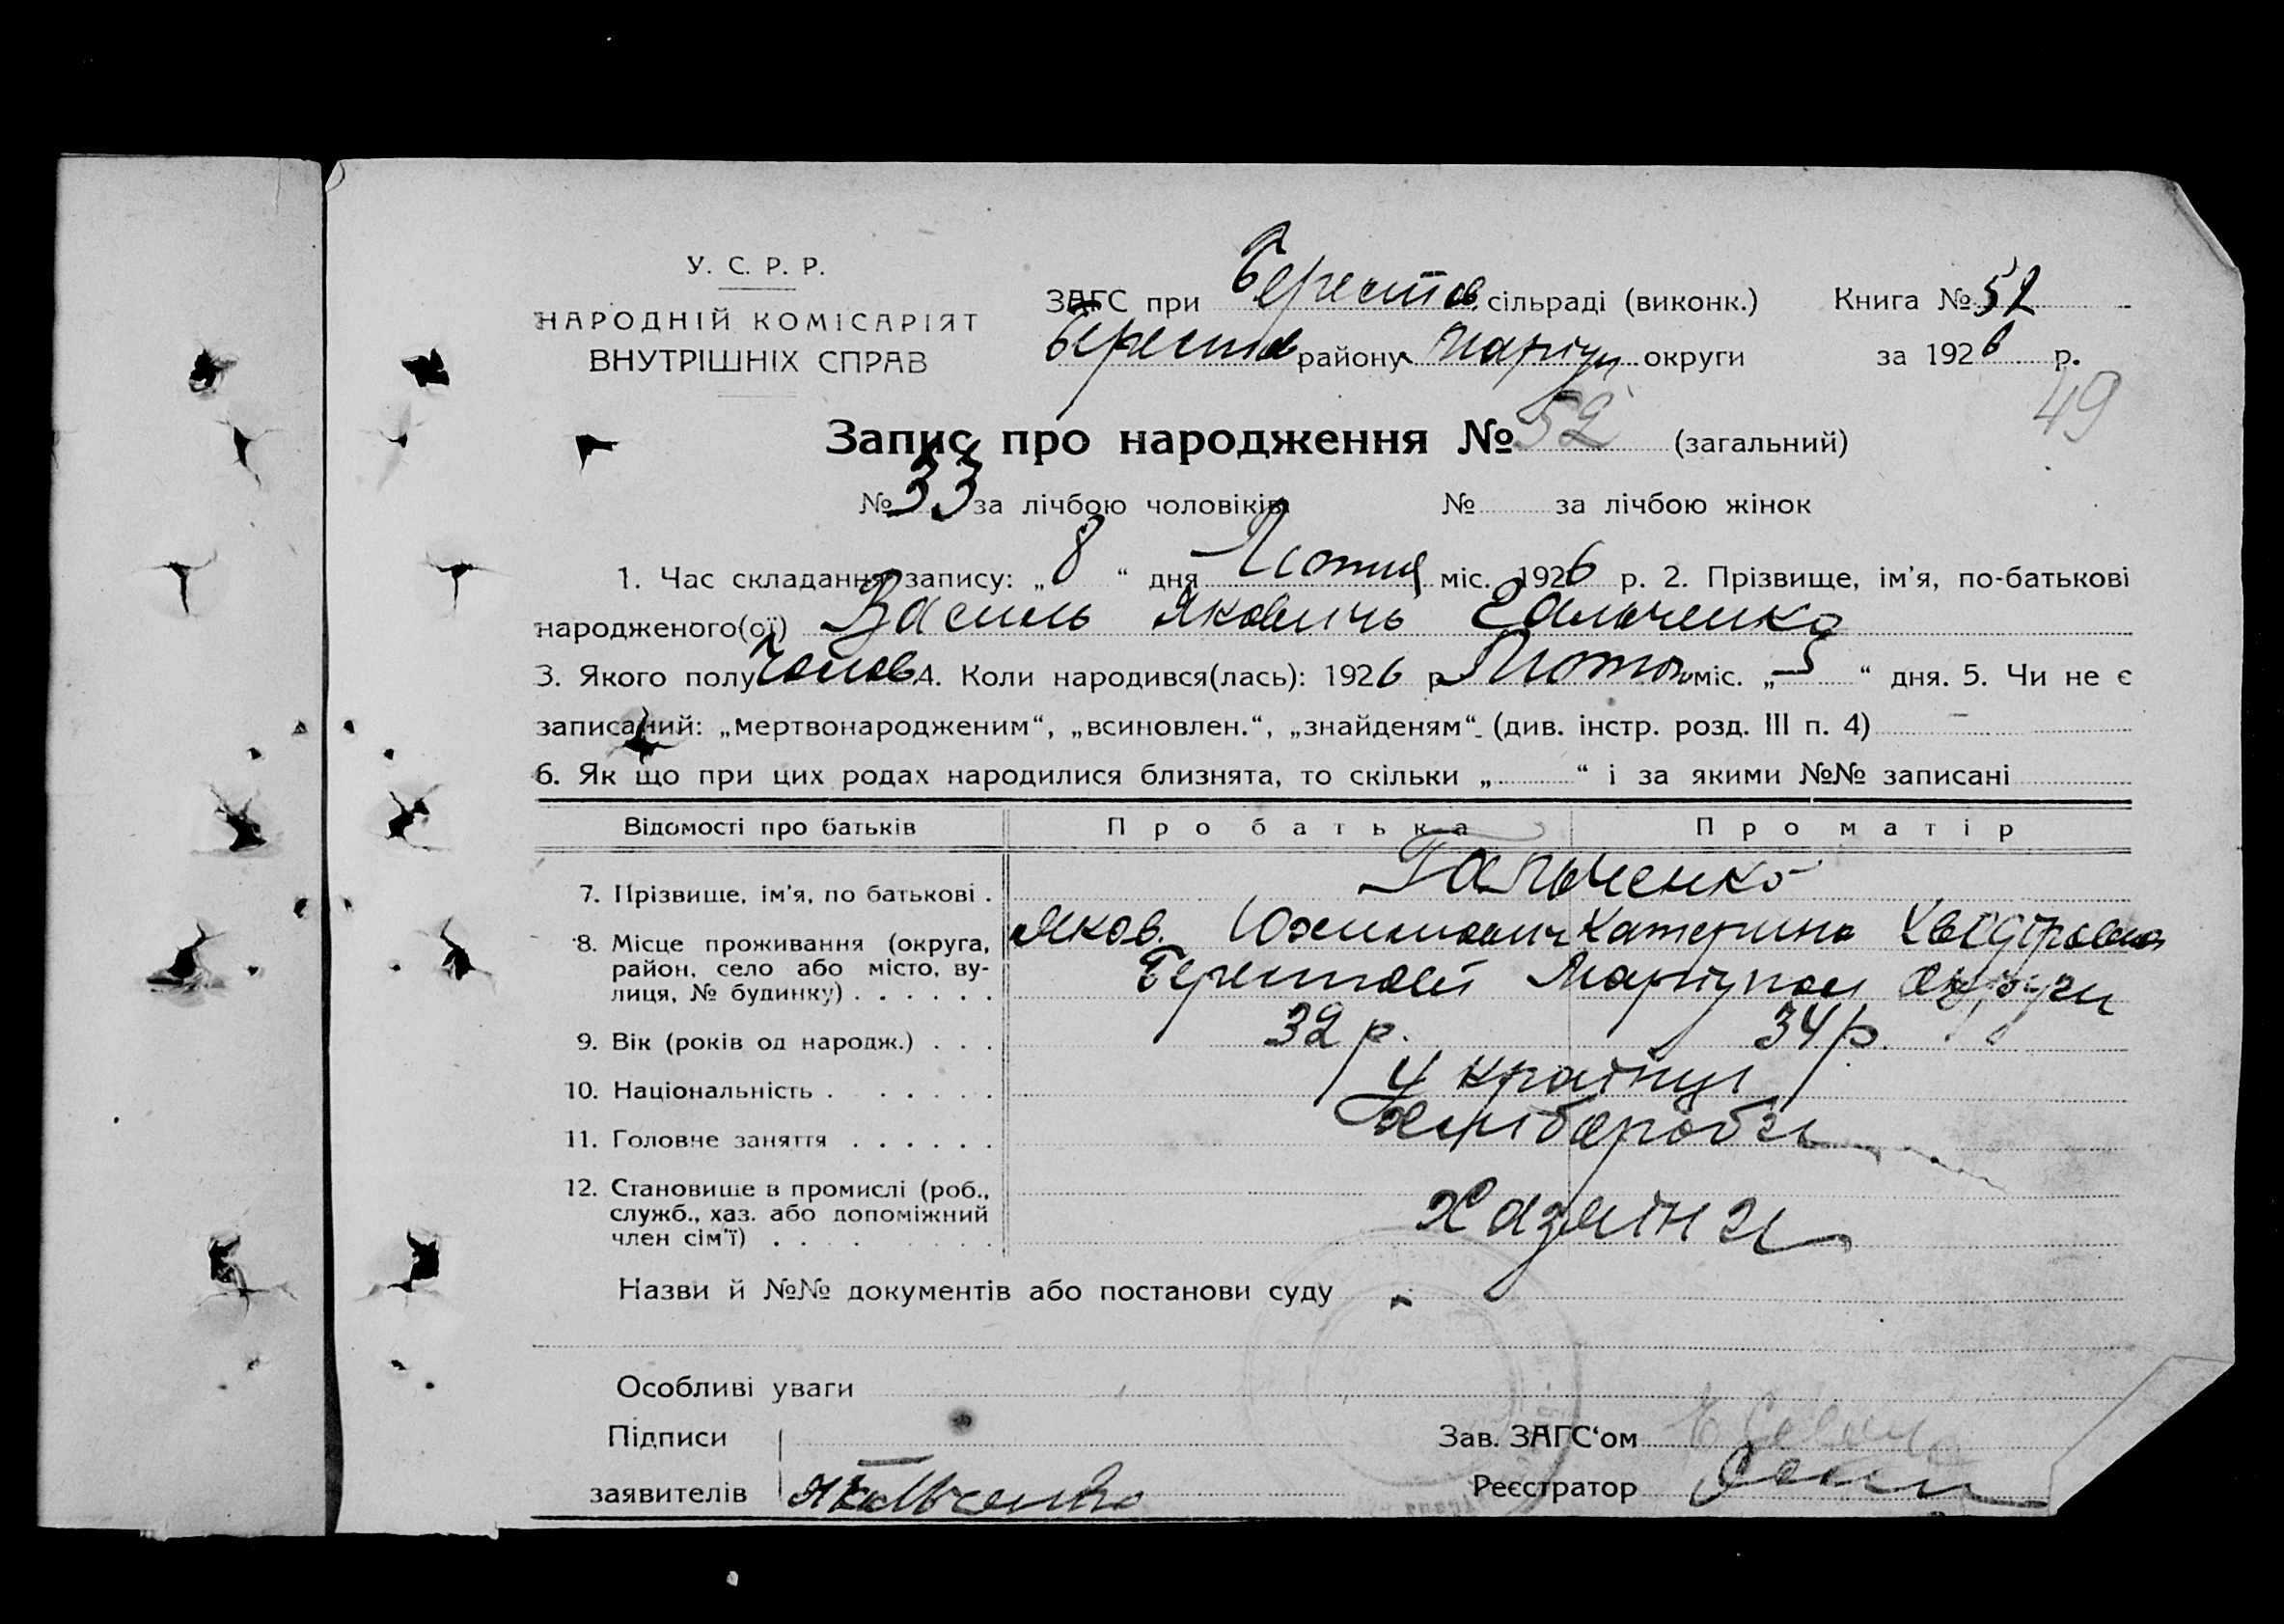 У. С. Р. Р.
НАРОДНІЙ КОМІСАРІЯТ
ВНУТРІШНІХ СПРАВ
ЗАГС при Берестов. сільраді (виконк.) Книга № 52
Берестов району Маріуп округи за 1926 р.
49
Запис про народження № 52 (загальний)
№ 33 за лічбою чоловіків № за лічбою жінок
1. Час складання запису: „ 8 “ дня Лютня міс. 1926 р. 2. Прізвище, ім'я, по-батькові
народженого(ої) Василь Яковичь Гальченко
3. Якого полу Чолов. 4. Коли народився(лась): 1926 р. міс. „ 5 “ дня. 5. Чи не є
записаний: „мертвонародженим“, „всиновлен.“, „знайденям“. (див. інстр. розд. III п. 4) –
6. Як що при цих родах народилися близнята, то скільки „ “ і за якими №№ записані
Відомості про батьків Про батька Про матір
7. Прізвище, ім'я, по батькові . Гальченко
Яков. Юхимович Катерина
8. Місце проживання (округа, район, село або місто, вулиця, № будинку) . . . . . . Маріупол округи
9. Вік (років од народж.) . . . 32 р. 34 р.
10. Національність . . . . . . . Україтци
11. Головне заняття . . . . . . хліборобы
12. Становище в промислі (роб., служб., хаз. або допоміжний член сім'ї) . . . . . . . Хазяіны
Назви й №№ документів або постанови суду -
Особливі уваги
Підписи Зав. ЗАГС'ом
заявителів Гальченко Реєстратор